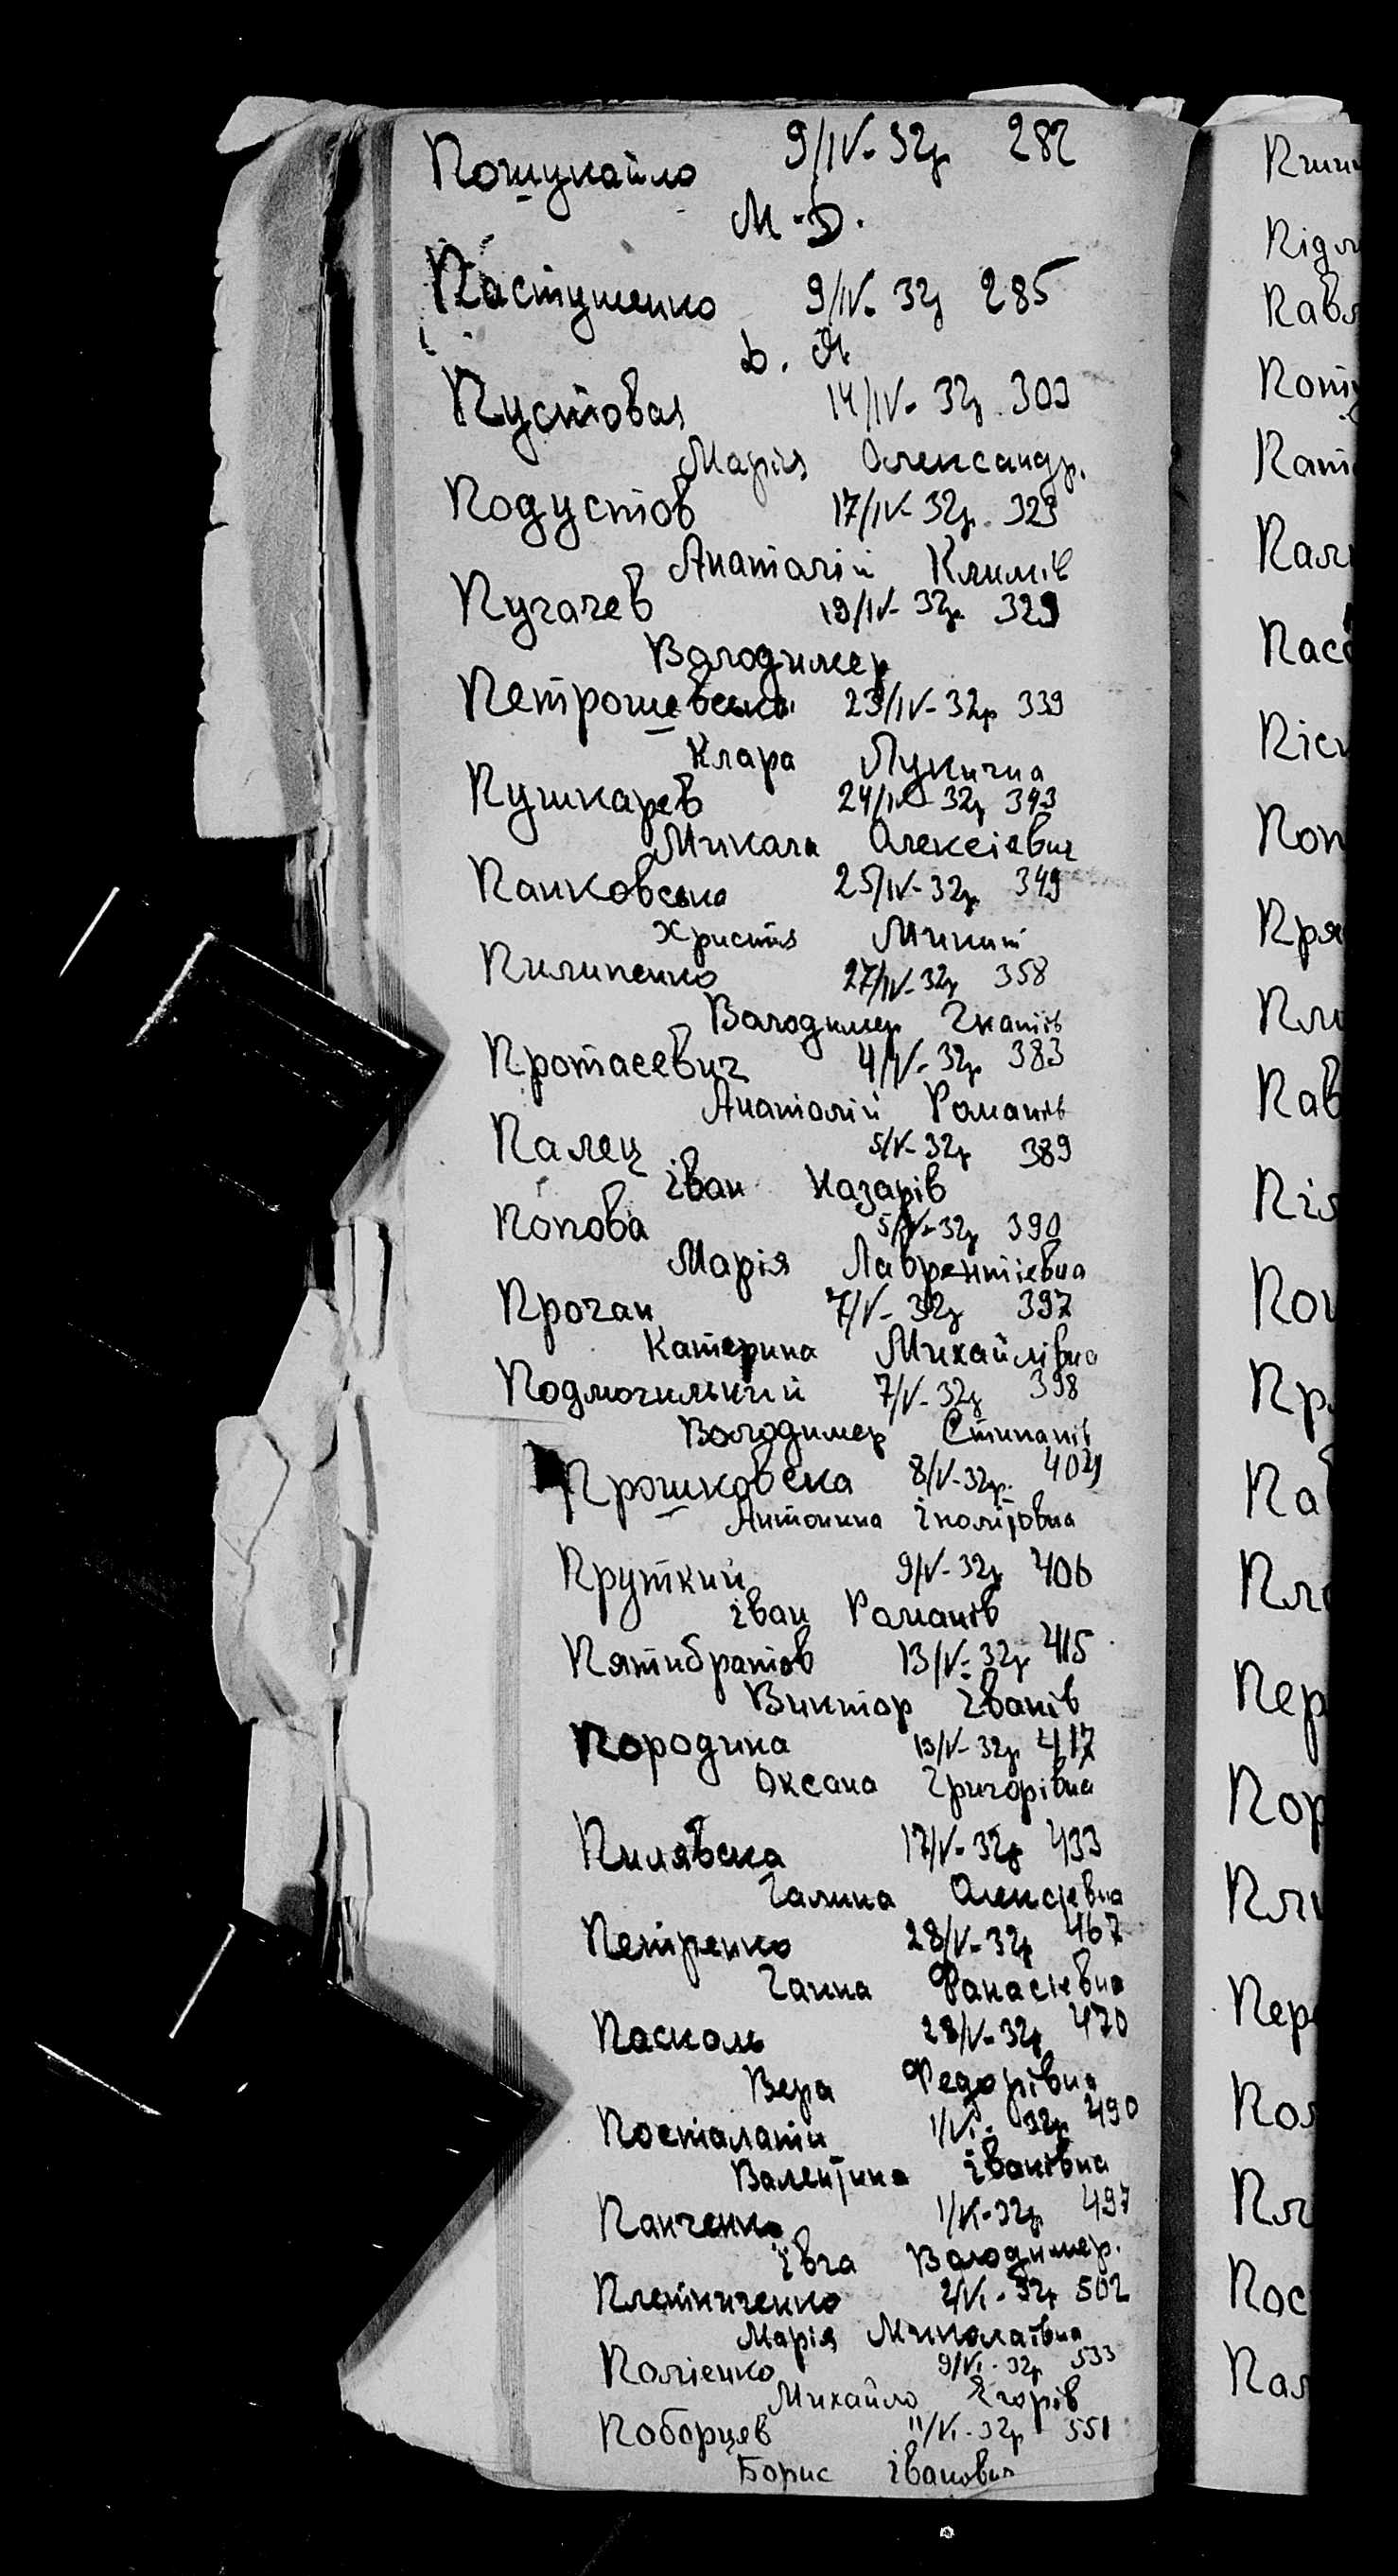 Пошукайло 9/IV-32р 282
М. D.
Пастушенко 9/IV-32р 285
Я
Пустовая 14/IV-32р. 303
Марія Олександр.
Подустов 17/IV-32р. 323
Анатолій Климів
Пугачев 19/IV-32р. 329
Володимер
Петрошевська 23/IV-32р 339
Клара Лукична
Пушкарев 24/IV-32р 343
Микола Олексієвич
Панковська 25/IV-32р 349
Христя Микит
Пилипенко 27/IV-32р 358
Володимер Гнатів
Протасевич 4/V-32р 383
Анатолій Романів
Палец 5/V-32р 389
Іван Назарів
Попова 5/V-32р 390
Марія Лаврентіевна
Прочан 7/V-32р 397
Катерина Михайлівна
Подмогильний 7/V-32р 398
Володимер Стипанів
Прошковска 8/V-32р.
Антонина Іполітовна
Пруткий 9/V-32р 406
Іван Романів
Пятибратов 13/V-32р 415
Виктор Іванів
Породина 13/V-32р 417
Оксана Григорівна
Пилявска 17/V-32р 433
Галина Олексієвна
Петренко 28/V-32р 467
Ганна Фанасієвна
Пасколь 28/V-32р 470
Вера Федорівна
Посталати 1/VI-32р 490
Валентина Іванівна
Панченко 1/VI-32р 497
Івга Володимер.
Плетниченко 2/VI-32р 502
Марія Миколаівна
Полієнко 9/VI-32р 533
Михайло Єгорів
Поборцев 11/VI-32р 551
Борис Іванович
Підл
Павл
Пасс
Поп
Пря
Пав
Піл
Пр
Па
Пер
Пор
Пер
Пос